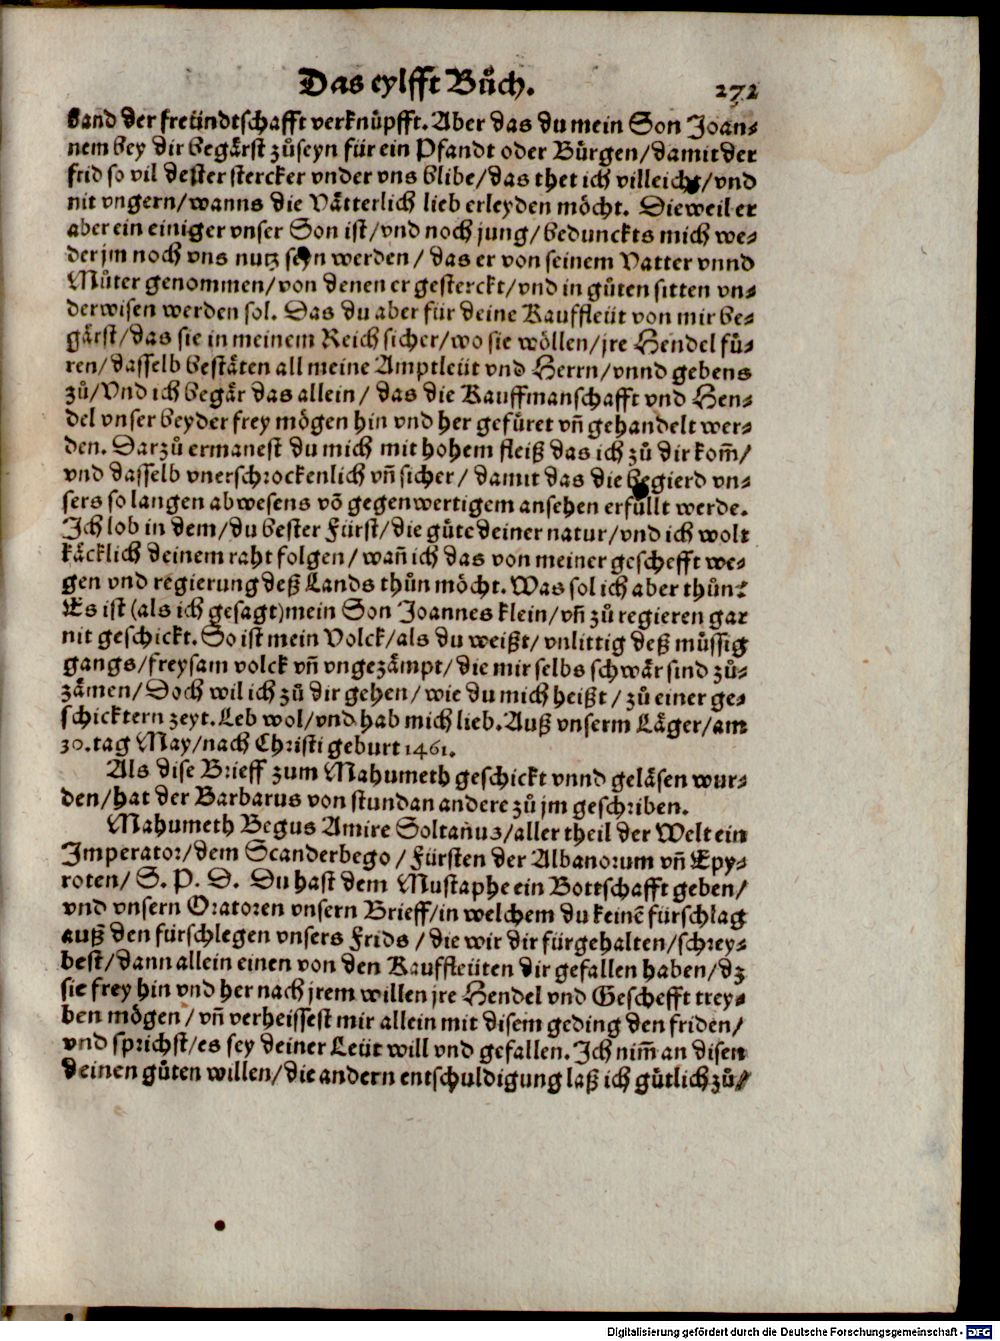 Das eylfft Bůch. 272
band der freündtschafft verknüpfft. Aber das du mein Son Joan-
nem bey dir begärst zůseyn für ein Pfandt oder Bürgen/damit der
frid so vil dester stercker vnder vns blibe/das thet ich villeicht/vnd
nit vngern/wanns die Vätterlich lieb erleyden möcht. Dieweil er
aber ein einiger vnser Son ist/vnd noch jung/bedunckts mich we-
der jm noch vns nutz seyn werden/das er von seinem Vatter vnnd
Můter genommen/von denen er gesterckt/vnd in gůten sitten vn-
derwisen werden sol. Das du aber für deine Kauffleüt von mir be-
gärst/das sie in meinem Reich sicher/wo sie wöllen/jre Hendel fů-
ren/dasselb bestäten all meine Amptleüt vnd Herrn/vnnd gebens
zů/Vnd ich begär das allein/das die Kauffmanschafft vnd Hen-
del vnser beyder frey mögen hin vnd her gefüret vñ gehandelt wer-
den. Darzů ermanest du mich mit hohem fleiß das ich zů dir kom̃/
vnd dasselb vnerschrockenlich vñ sicher/damit das die begierd vn-
sers so langen abwesens võ gegenwertigem ansehen erfüllt werde.
Ich lob in dem/du bester Fürst/die gůte deiner natur/vnd ich wolt
käcklich deinem raht folgen/wañ ich das von meiner geschefft we-
gen vnd regierung deß Lands thůn möcht. Was sol ich aber thůn?
Es ist (als ich gesagt) mein Son Joannes klein/vñ zů regieren gar
nit geschickt. So ist mein Volck/als du weißt/vnlittig deß müssig
gangs/freysam volck vñ vngezämpt/die mir selbs schwär sind zů-
zämen/Doch wil ich zů dir gehen/wie du mich heißt/zů einer ge-
schicktern zeyt. Leb wol/vnd hab mich lieb. Auß vnserm Läger/am
30. tag May/nach Christi geburt 1461.
Als dise Brieff zum Mahumeth geschickt vnnd geläsen wur-
den/hat der Barbarus von stundan andere zů jm geschriben.
Mahumeth Begus Amire Soltanus/aller theil der Welt ein
Imperator/dem Scanderbego/Fürsten der Albanorum vñ Epy-
roten/S. P. D. Du hast dem Mustaphe ein Bottschafft geben/
vnd vnsern Oratoren vnsern Brieff/in welchem du keinẽ fürschlag
auß den fürschlegen vnsers Frids/die wir dir fürgehalten/schrey-
best/dann allein einen von den Kauffleüten dir gefallen haben/dz
sie frey hin vnd her nach jrem willen jre Hendel vnd Geschefft trey-
ben mögen/vñ verheissest mir allein mit disem geding den friden/
vnd sprichst/es sey deiner Leüt will vnd gefallen. Ich nim̃ an disen
deinen gůten willen/die andern entschuldigung laß ich gütlich zů/
Digitalisierung gefördert durch die Deutsche Forschungsgemeinschaft - DFG